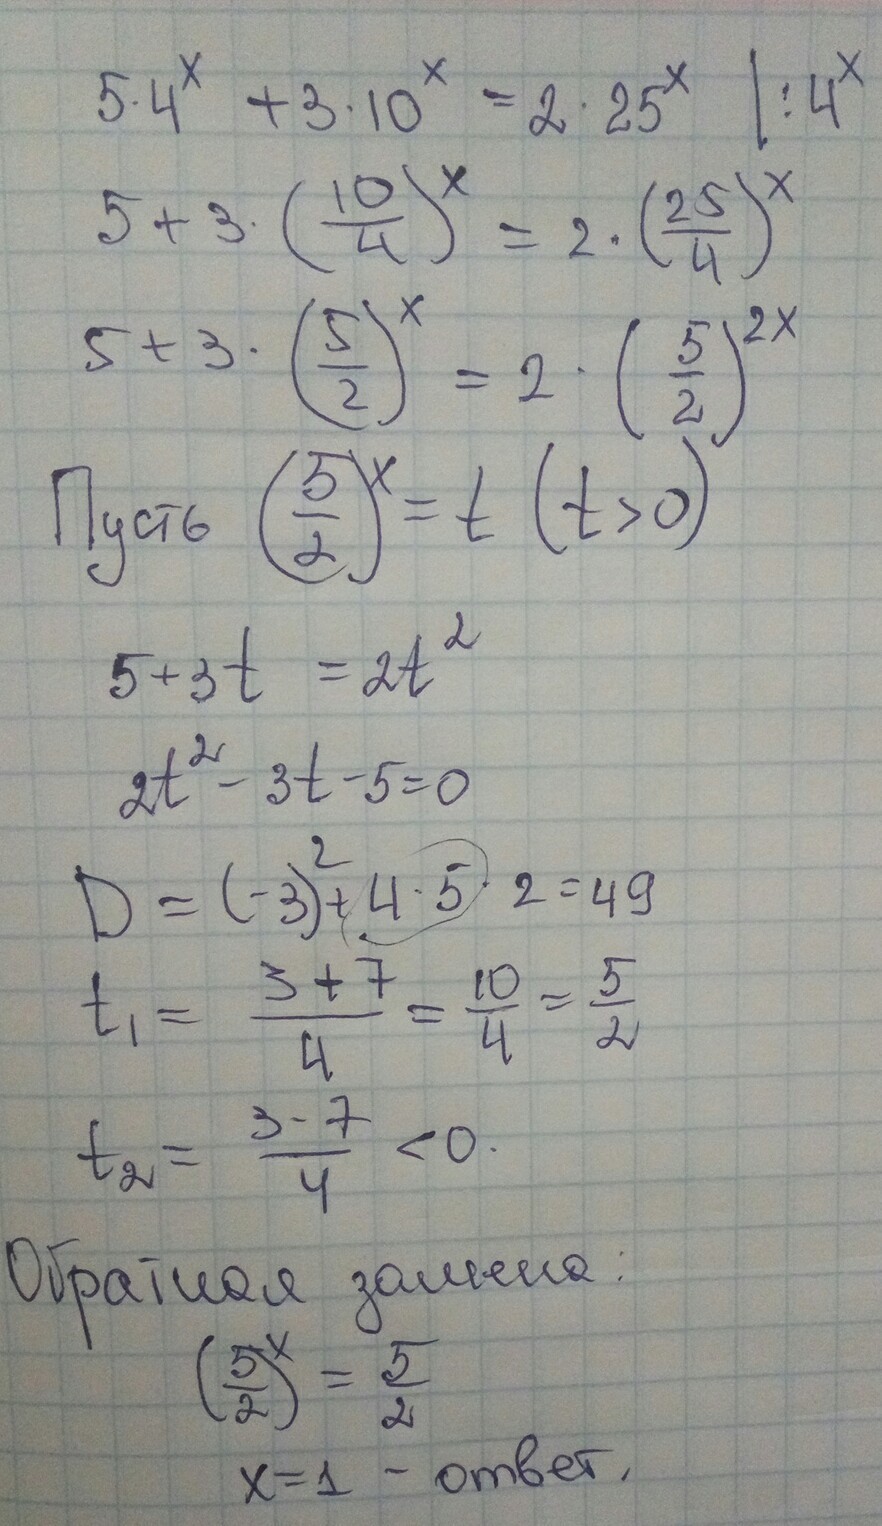 5·4^x + 3·10^x = 2·25^x |:4^x
5 + 3·(10/4)^x = 2·(25/4)^x
5 + 3·(5/2)^x = 2·(5/2)^2x
Пусть (5/2)^x = t (t>0)
5+3t = 2t^2
2t^2 - 3t - 5 = 0
D = (-3)^2 + 4·5·2 = 49
t₁ = (3+7)/4 = 10/4 = 5/2
t₂ = (3-7)/4 < 0.
Обратная замена:
(5/2)^x = 5/2
x=1 - ответ.